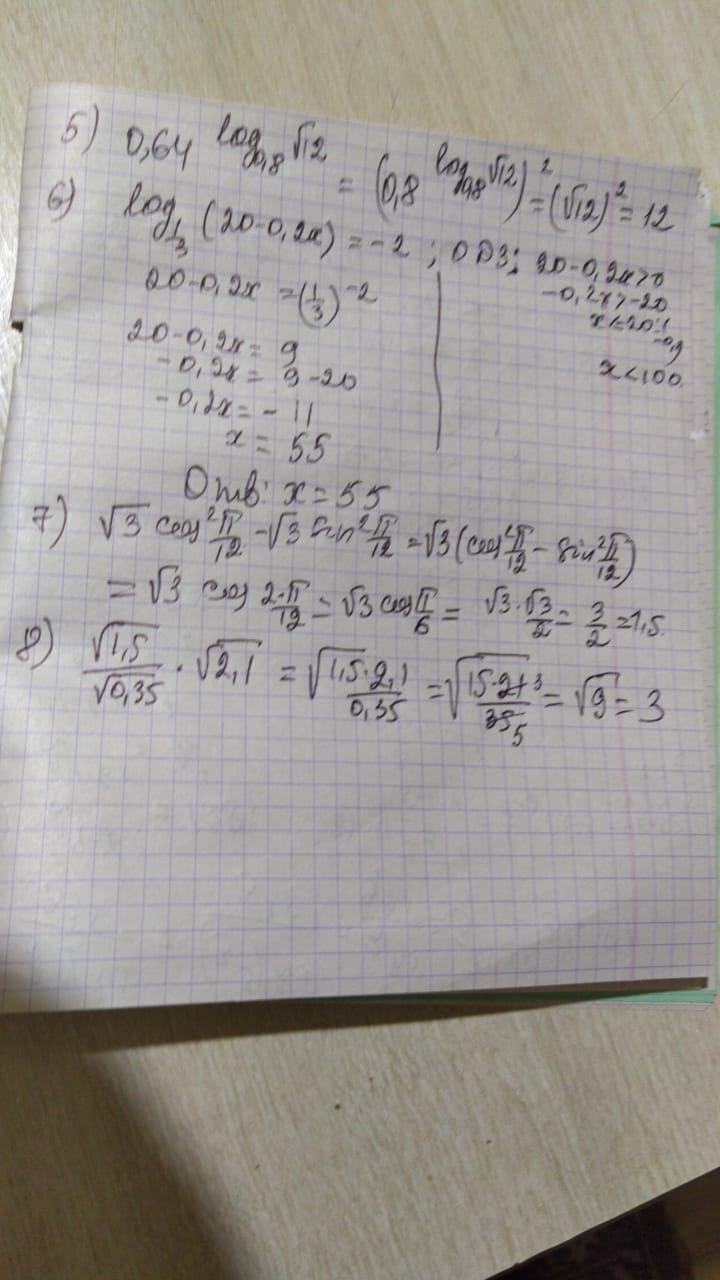 5) 0,64^{log_{0,8}√12} = (0,8^{log_{0,8}√12})^2 = (√12)^2 = 12
6) log_{1/3} (20-0,2x) = -2 ; ОДЗ: 20-0,2x>0
20-0,2x = (1/3)^{-2}
-0,2x>-20
20-0,2x = 9
-0,2x = 9-20
x<100
-0,2x = -11
x = 55
Отв: x = 55
7) √3 cos^2 π/12 - √3 sin^2 π/12 = √3 (cos^2 π/12 - sin^2 π/12)
= √3 cos 2·π/12 = √3 cos π/6 = √3·√3/2 = 3/2 = 1,5.
8) √1,5/√0,35 · √2,1 = √(1,5·2,1/0,35) = √(15·21 3/35 5) = √9 = 3